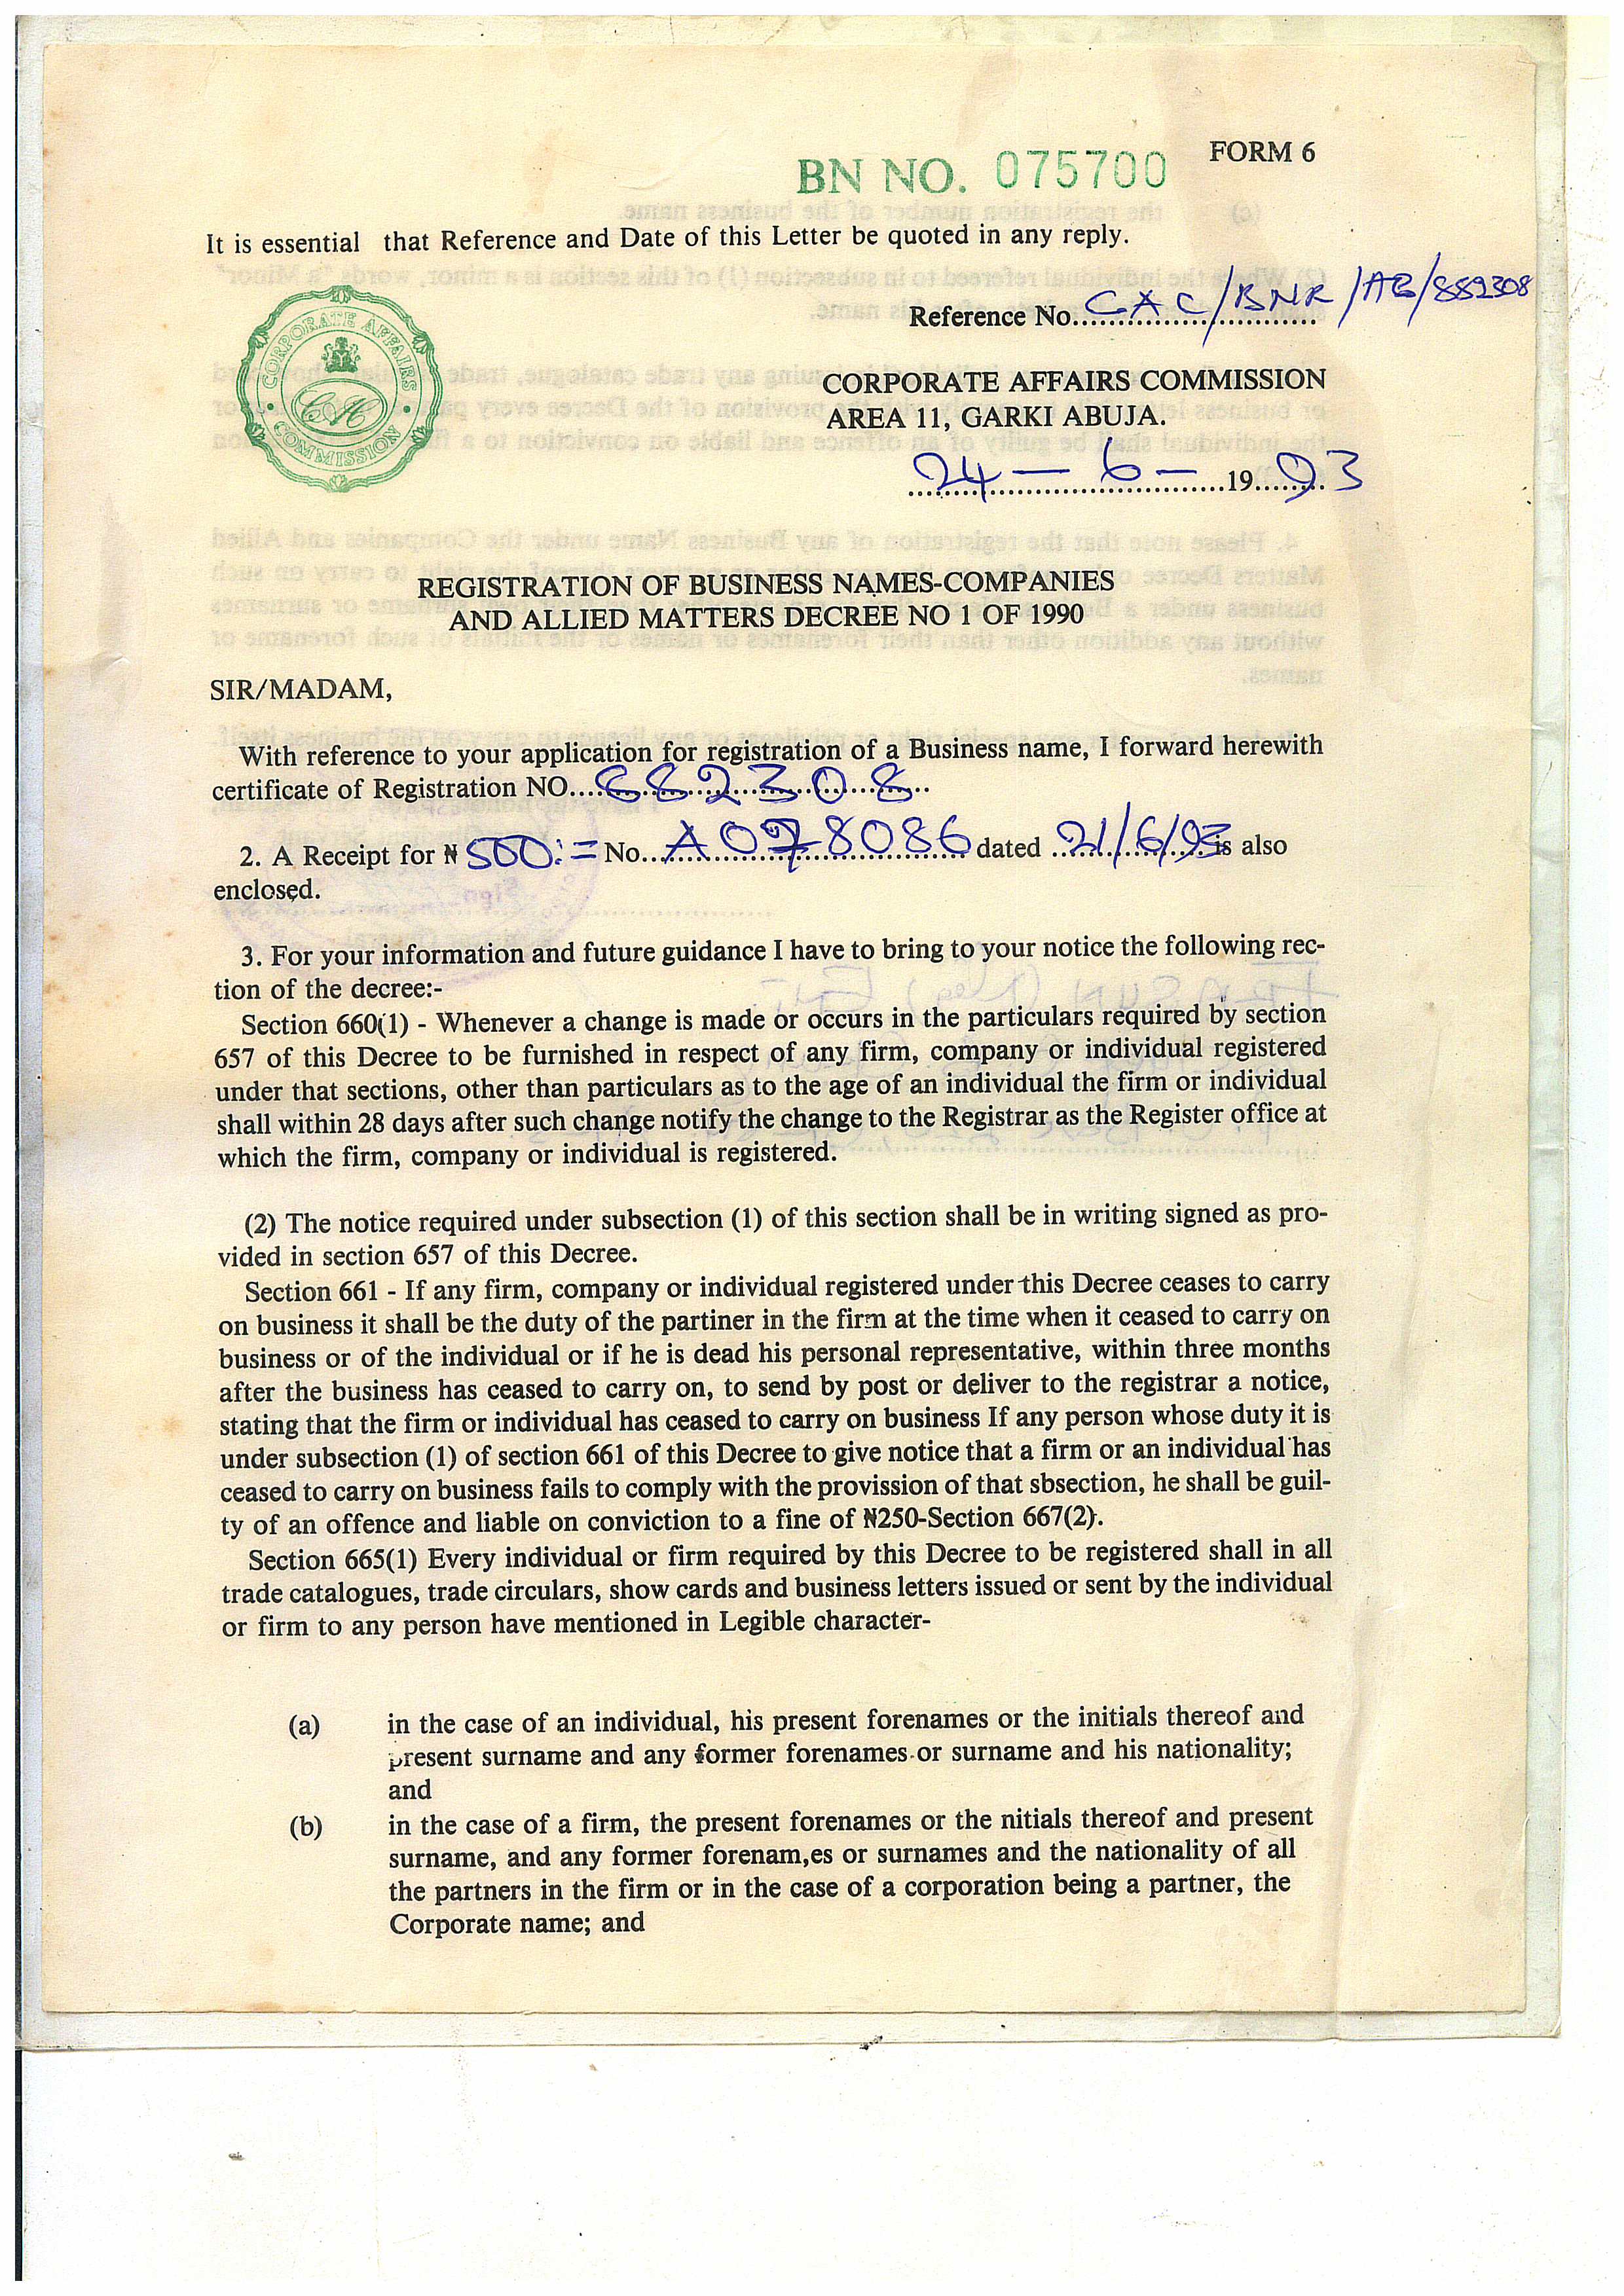 FORM 6
BN NO. 075700
It is essential that Reference and Date of this Letter be quoted in any reply.
Reference No. CAC/BNR/AB/882308
CORPORATE AFFAIRS COMMISSION
CORPORATE AFFAIRS COMMISSION
AREA 11, GARKI ABUJA.
24 - 6 - 1993
REGISTRATION OF BUSINESS NAMES-COMPANIES
AND ALLIED MATTERS DECREE NO 1 OF 1990
SIR/MADAM,
With reference to your application for registration of a Business name, I forward herewith
certificate of Registration NO... 882308
2. A Receipt for ₦ 500:= No... A078086 dated 21/6/93 is also
enclosed.
3. For your information and future guidance I have to bring to your notice the following rec-
tion of the decree:-
Section 660(1) - Whenever a change is made or occurs in the particulars required by section
657 of this Decree to be furnished in respect of any firm, company or individual registered
under that sections, other than particulars as to the age of an individual the firm or individual
shall within 28 days after such change notify the change to the Registrar as the Register office at
which the firm, company or individual is registered.
(2) The notice required under subsection (1) of this section shall be in writing signed as pro-
vided in section 657 of this Decree.
Section 661 - If any firm, company or individual registered under this Decree ceases to carry
on business it shall be the duty of the partiner in the firm at the time when it ceased to carry on
business or of the individual or if he is dead his personal representative, within three months
after the business has ceased to carry on, to send by post or deliver to the registrar a notice,
stating that the firm or individual has ceased to carry on business If any person whose duty it is
under subsection (1) of section 661 of this Decree to give notice that a firm or an individual has
ceased to carry on business fails to comply with the provission of that sbsection, he shall be guil-
ty of an offence and liable on conviction to a fine of ₦250-Section 667(2).
Section 665(1) Every individual or firm required by this Decree to be registered shall in all
trade catalogues, trade circulars, show cards and business letters issued or sent by the individual
or firm to any person have mentioned in Legible character-
(a) in the case of an individual, his present forenames or the initials thereof and
present surname and any former forenames or surname and his nationality;
and
(b) in the case of a firm, the present forenames or the nitials thereof and present
surname, and any former forenam,es or surnames and the nationality of all
the partners in the firm or in the case of a corporation being a partner, the
Corporate name; and